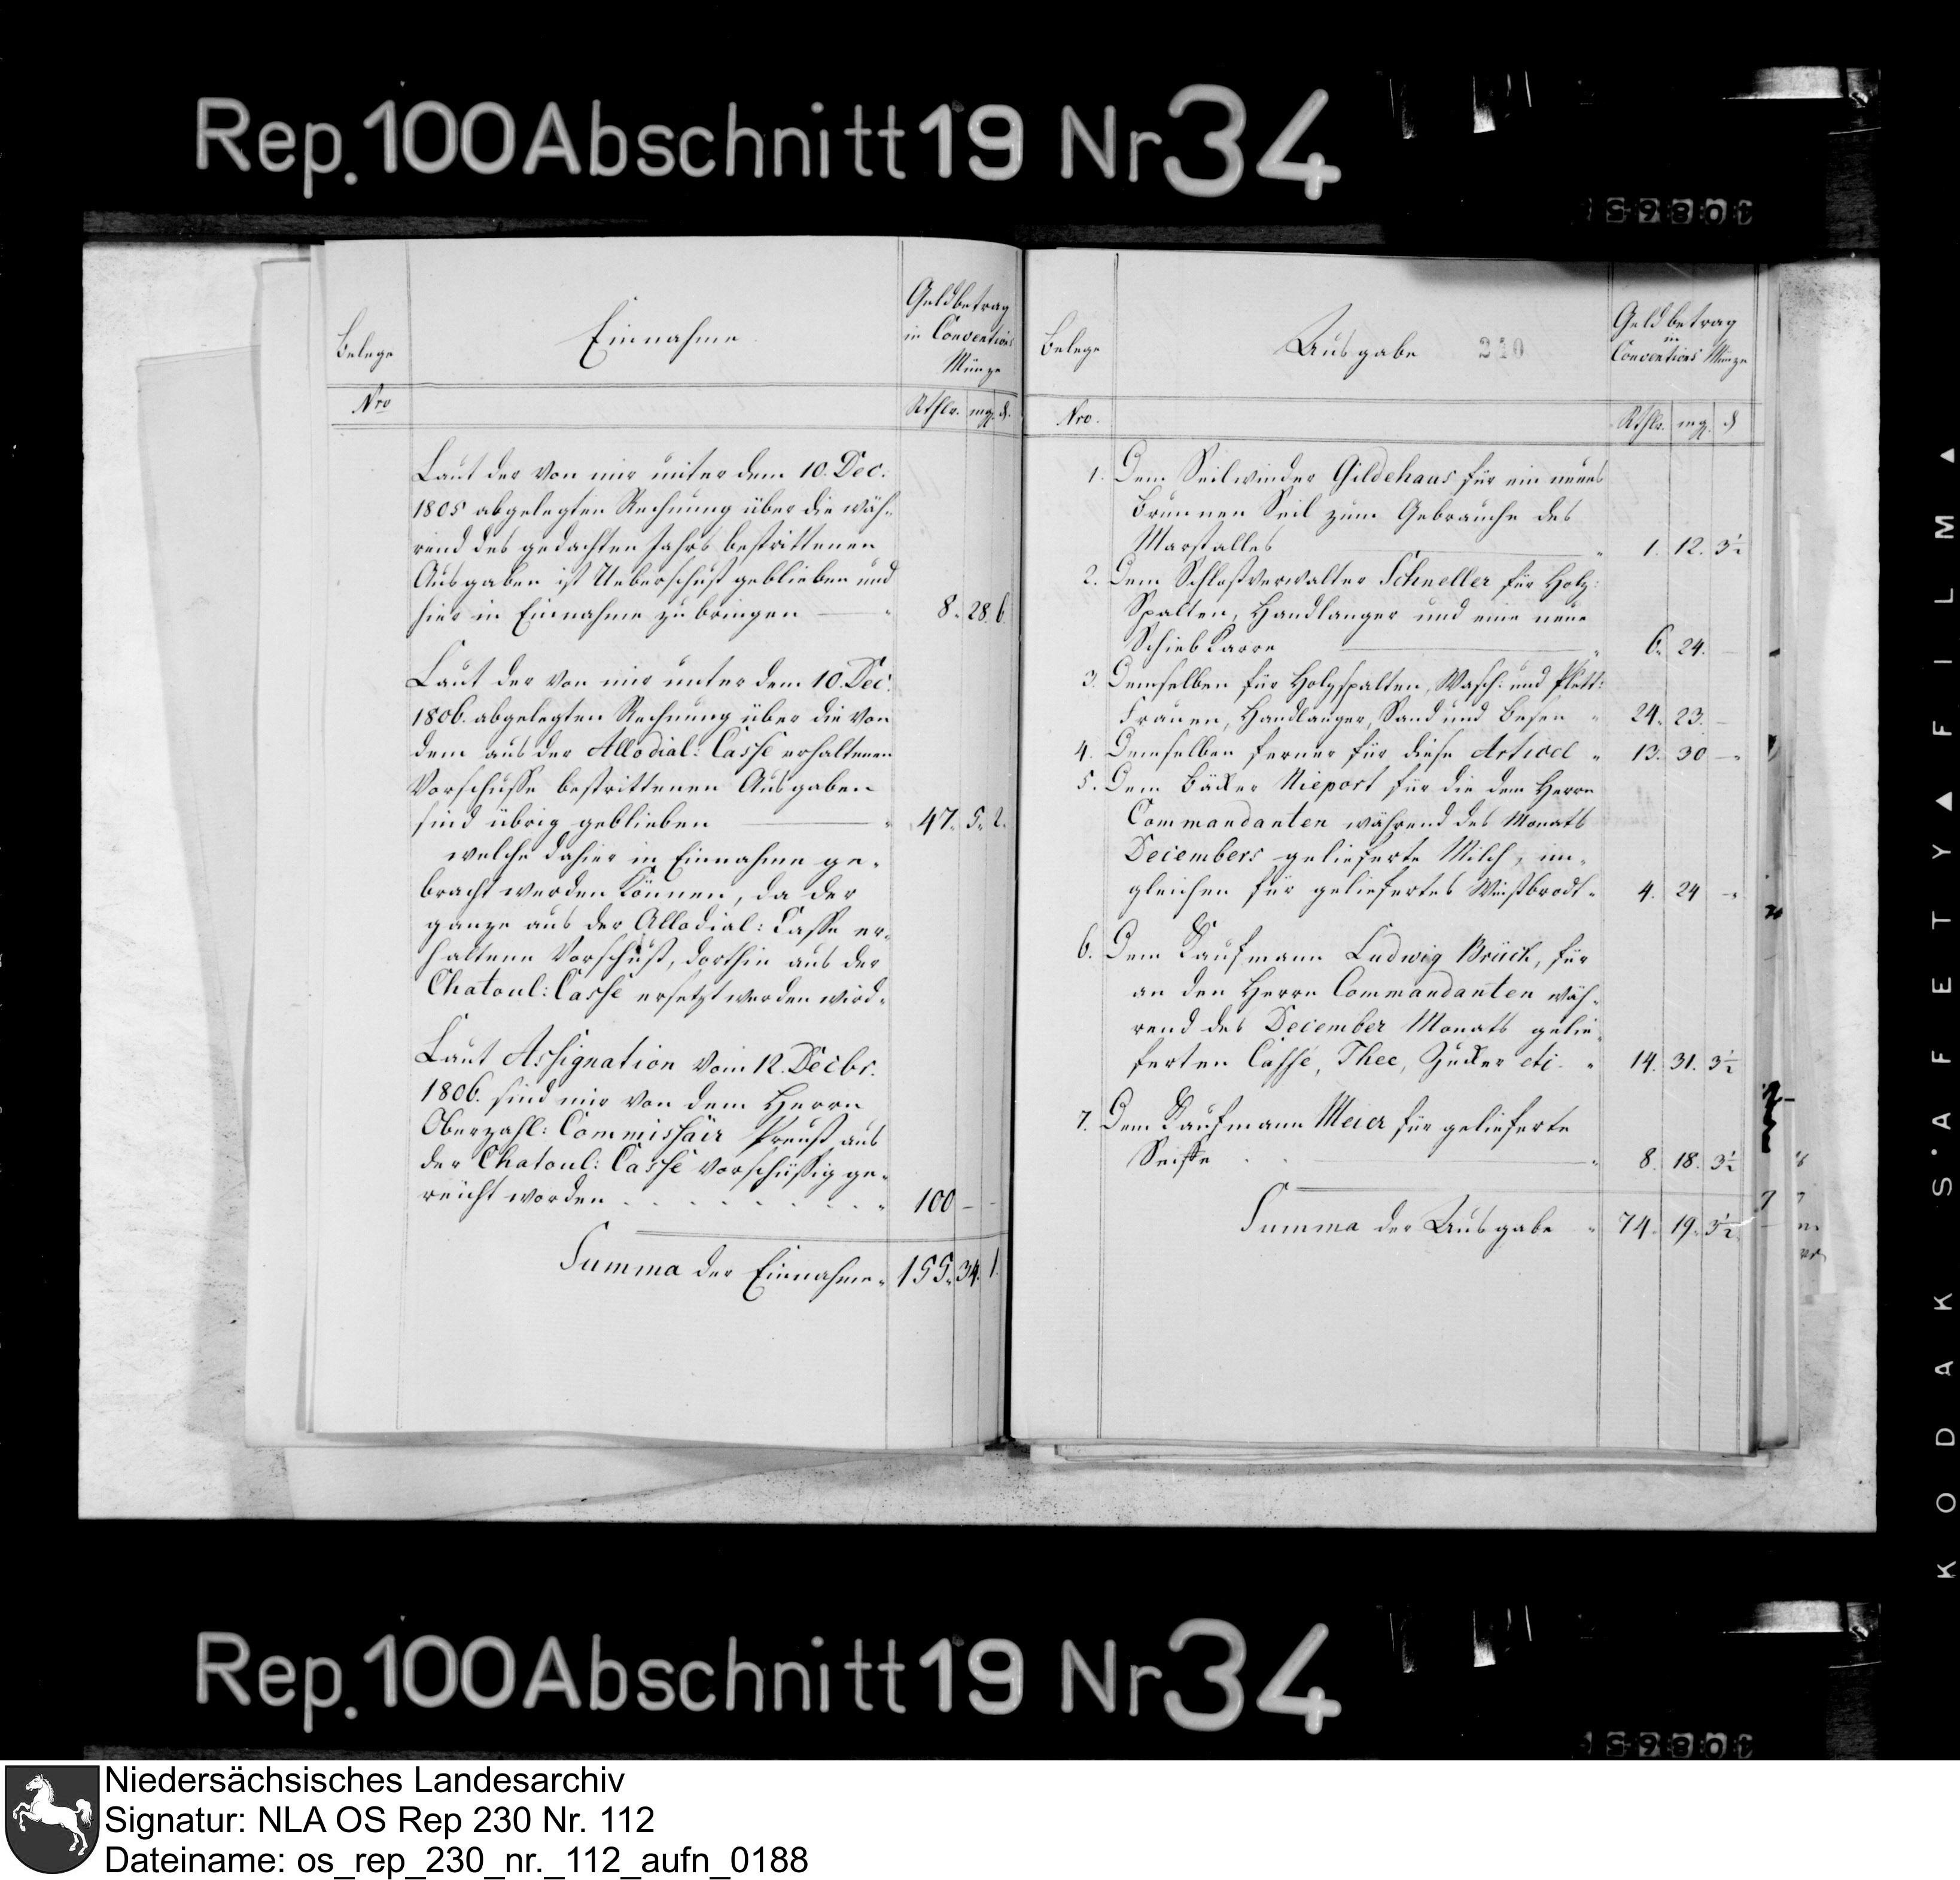 Rep. 100 Abschnitt 19 Nr 34
Belege
Einnahme
Geldbetrag
in Conventions
Münze
Nro
Rthlr. mgr. d.
Laut der von mir unter dem 10. Dec.
1805 abgelegten Rechnung über die wäh-
rend des gedachten Jahrs bestrittenen
Ausgaben ist Ueberschuß geblieben und
hier in Einnahme zu bringen — " 8. 28. 6.
Laut der von mir unter dem 10. Dec.
1806. abgelegten Rechnung über die von
dem aus der Allodial: Casse erhaltenen
Vorschusse bestrittenen Ausgaben
sind übrig geblieben — " 47. 5. 2.
welche dahier in Einnahme ge-
bracht werden können, da der
ganze aus der Allodial: Casse er-
haltene Vorschuß, dorthin aus der
Chatoul: Casse ersetzt werden wird.
Laut Assignation vom 12. Decbr.
1806. sind mir von dem Herrn
Oberzahl: Commissair Preuß aus
der Chatoul: Casse vorschüssig ge-
reicht worden . . . . . . . . " 100 — -
Summa der Einnahme " 155. 34. 1.
Belege
Ausgabe 210
Geldbetrag
in
Conventions Münze
Nro.
Rthlr. mgr. d
1. Dem Seilwinder Gildehaus für ein neues
Brunnen Seil zum Gebrauche des
Marstalles — " 1. 12. 3½
2. Dem Schloßverwalter Schneller für Holz:
Spalten, Handlanger und eine neue
Schieb Karre — " 6. 24. —
3. Demselben für Holzspalten, Wasch: und Plett:
Frauen, Handlanger, Sand und Besen " 24. 23. —
4. Demselben ferner für diese Articel " 13. 30 — "
5. Dem Bäcker Niepört für die dem Herrn
Commandanten während des Monats
Decembers gelieferte Milch, im-
gleichen für geliefertes Weißbrodt " 4. 24 — "
6. Dem Kaufmann Ludwig Brück, für
an den Herrn Commandanten wäh-
rend des December Monats gelie-
ferten Caffé, Thee, Zucker etc. " 14. 31. 3½
7. Dem Kaufmann Meier für gelieferte
Seiffe . . — " 8. 18. 3½
Summa der Ausgabe " 74. 19. 3½
KODAK·SAFETY▲FILM▲
Rep. 100 Abschnitt 19 Nr 34
Niedersächsisches Landesarchiv
Signatur: NLA OS Rep 230 Nr. 112
Dateiname: os_rep_230_nr._112_aufn_0188